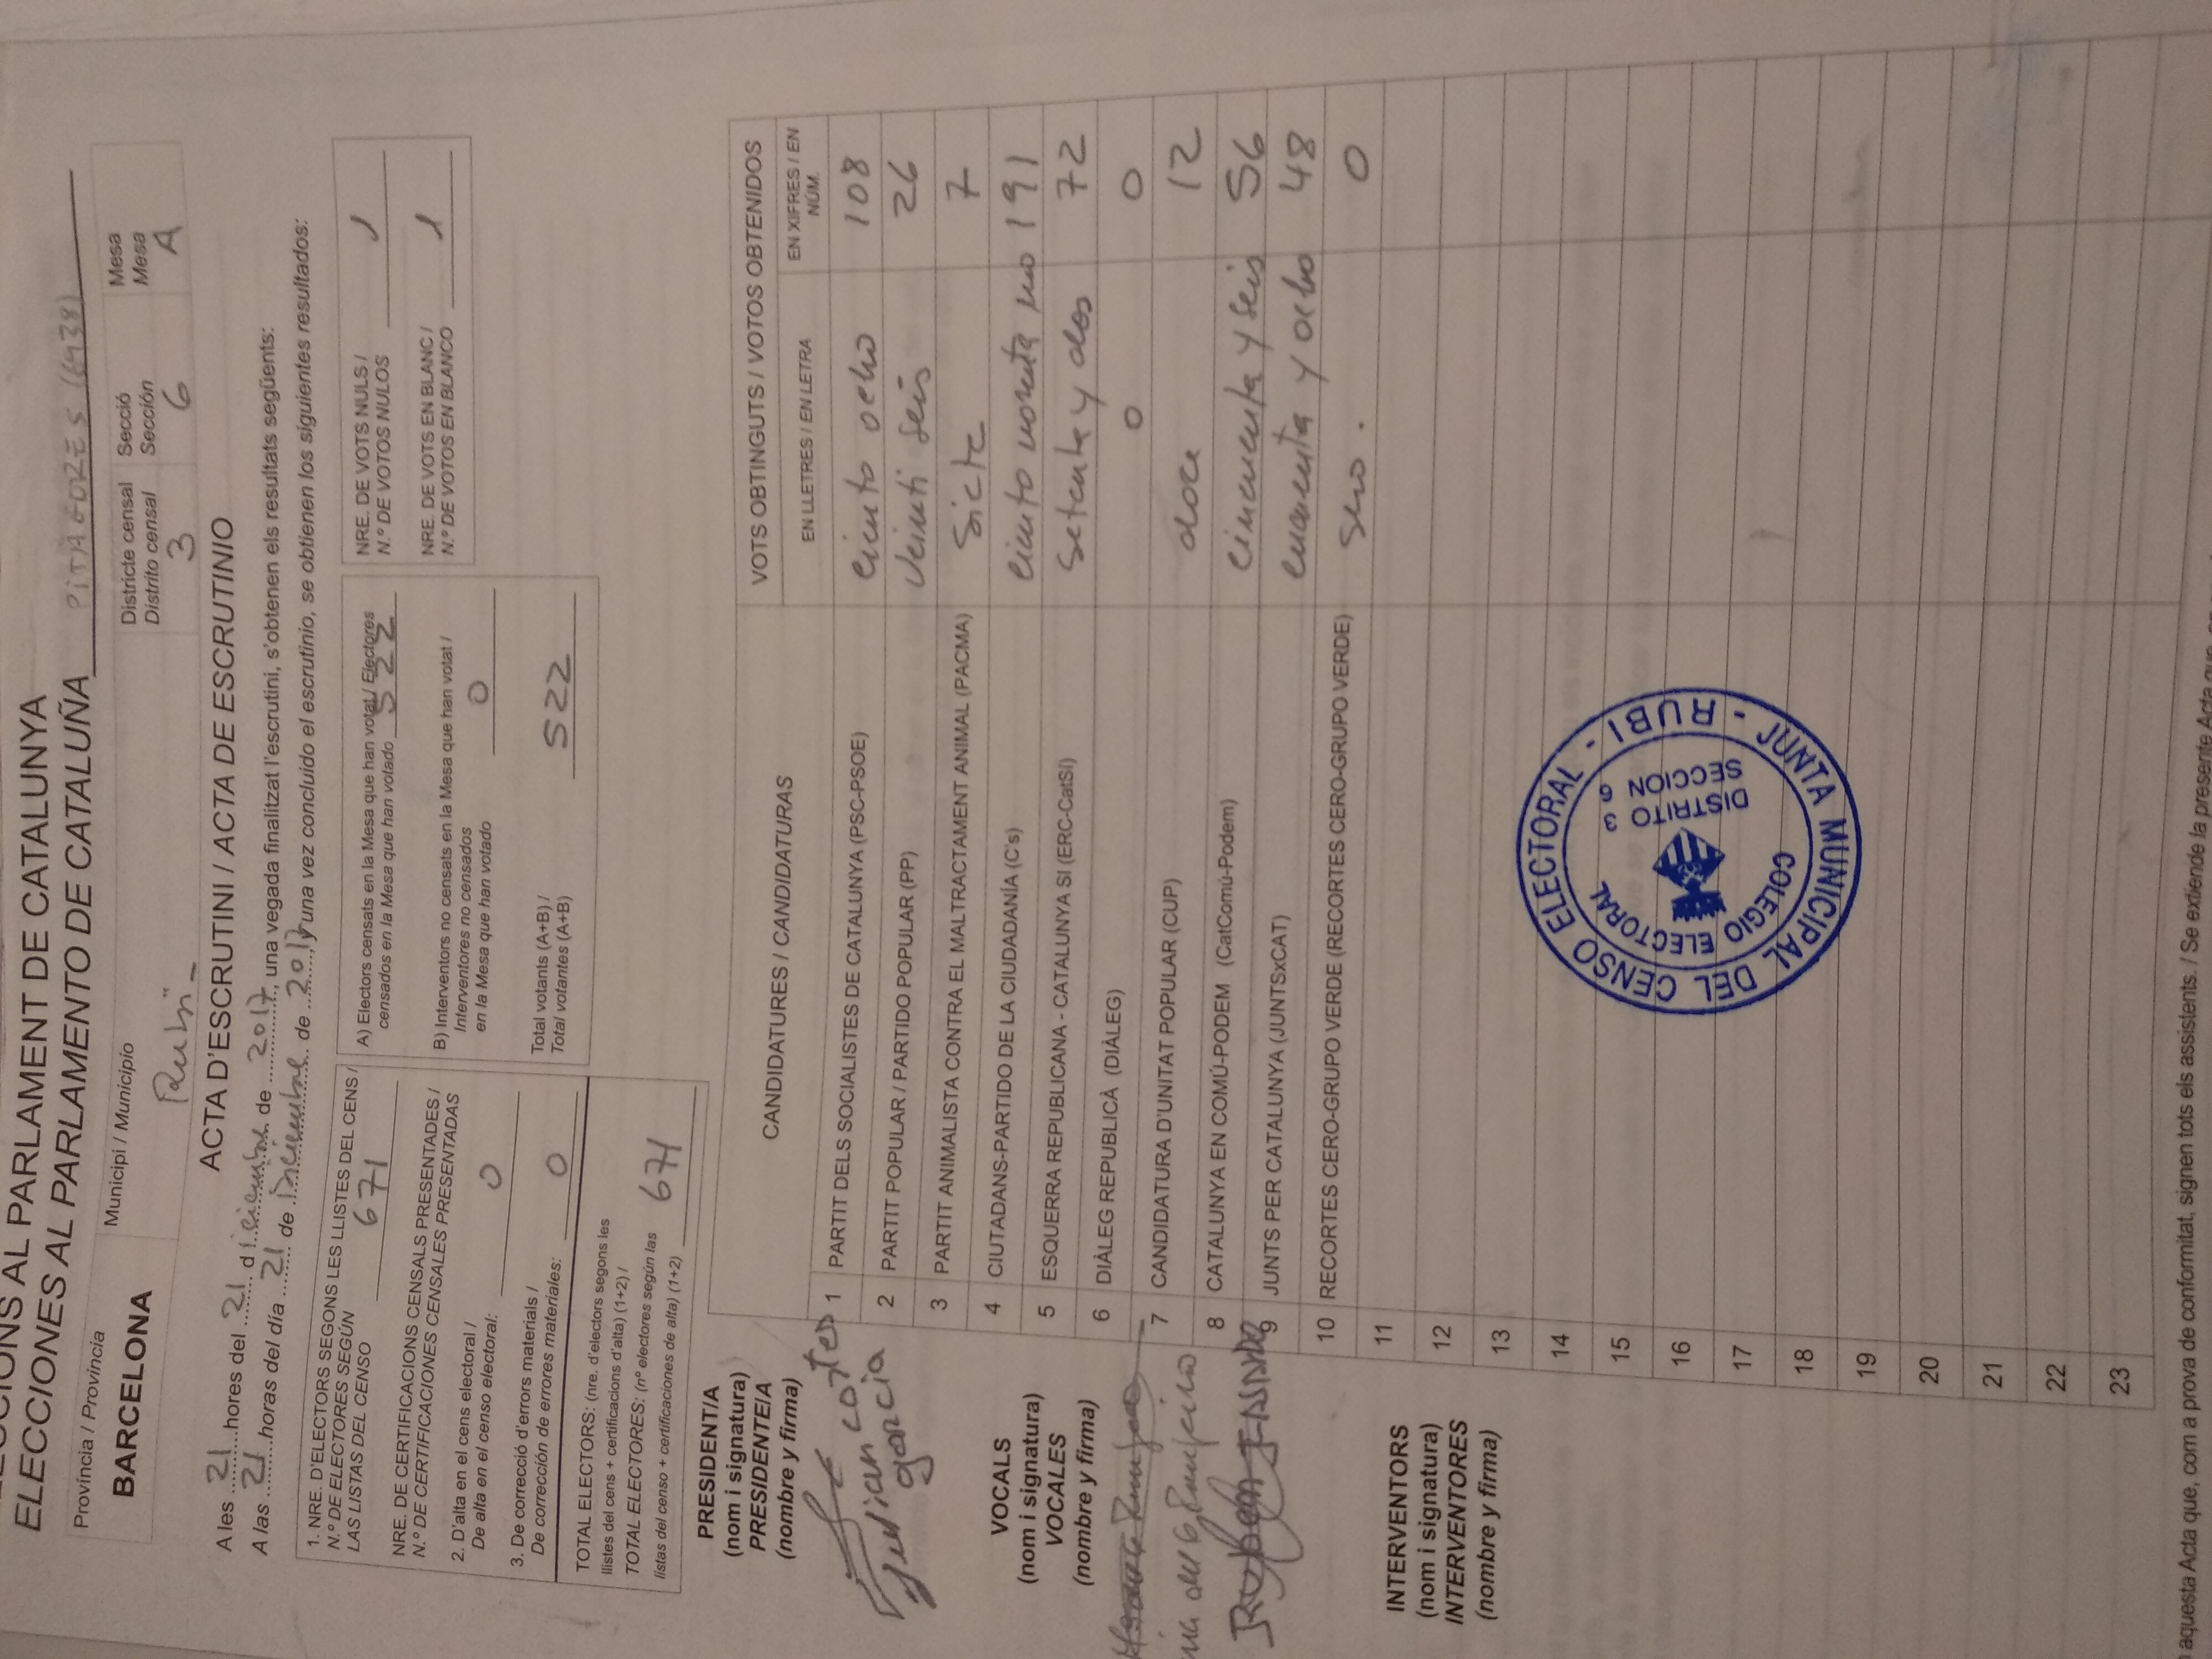 ELECCIONS AL PARLAMENT DE CATALUNYA
ELECCIONES AL PARLAMENTO DE CATALUÑA PITÀGORES (6938)
Província / Provincia
BARCELONA
Municipi / Municipio
Rubí
Districte censal
Distrito censal
3
Secció
Sección
6
Mesa
Mesa
A
ACTA D'ESCRUTINI / ACTA DE ESCRUTINIO
A les 21 hores del 21 d iciembre de 2017, una vegada finalitzat l'escrutini, s'obtenen els resultats següents:
A las 21 horas del día 21 de Diciembre de 2017, y una vez concluido el escrutinio, se obtienen los siguientes resultados:
1. NRE. D'ELECTORS SEGONS LES LLISTES DEL CENS /
N.º DE ELECTORES SEGÚN
LAS LISTAS DEL CENSO 671
NRE. DE CERTIFICACIONS CENSALS PRESENTADES /
N.º DE CERTIFICACIONES CENSALES PRESENTADAS
2. D'alta en el cens electoral /
De alta en el censo electoral: 0
3. De correcció d'errors materials /
De corrección de errores materiales: 0
TOTAL ELECTORS: (nre. d'electors segons les
llistes del cens + certificacions d'alta) (1+2) /
TOTAL ELECTORES: (nº electores según las
listas del censo + certificaciones de alta) (1+2) 671
A) Electors censats en la Mesa que han votat / Electores
censados en la Mesa que han votado 522
B) Interventors no censats en la Mesa que han votat /
Interventores no censados
en la Mesa que han votado 0
Total votants (A+B) /
Total votantes (A+B) 522
NRE. DE VOTS NULS /
N.º DE VOTOS NULOS 1
NRE. DE VOTS EN BLANC /
N.º DE VOTOS EN BLANCO 1
PRESIDENT/A
(nom i signatura)
PRESIDENTE/A
(nombre y firma)
Julian cortes
garcia
VOCALS
(nom i signatura)
VOCALES
(nombre y firma)
Ruben
INTERVENTORS
(nom i signatura)
INTERVENTORES
(nombre y firma)
CANDIDATURES / CANDIDATURAS
VOTS OBTINGUTS / VOTOS OBTENIDOS
EN LLETRES / EN LETRA
EN XIFRES / EN
NÚM.
1 PARTIT DELS SOCIALISTES DE CATALUNYA (PSC-PSOE) ciento ocho 108
2 PARTIT POPULAR / PARTIDO POPULAR (PP) Veinti seis 26
3 PARTIT ANIMALISTA CONTRA EL MALTRACTAMENT ANIMAL (PACMA) Siete 7
4 CIUTADANS-PARTIDO DE LA CIUDADANÍA (C's) ciento noventa uno 191
5 ESQUERRA REPUBLICANA - CATALUNYA SI (ERC-CatSí) Setenta y dos 72
6 DIÀLEG REPUBLICÀ (DIÀLEG) 0 0
7 CANDIDATURA D'UNITAT POPULAR (CUP) doce 12
8 CATALUNYA EN COMÚ-PODEM (CatComú-Podem) cincuenta y seis 56
9 JUNTS PER CATALUNYA (JUNTSxCAT) y ocho 48
10 RECORTES CERO-GRUPO VERDE (RECORTES CERO-GRUPO VERDE) Sero. 0
11
12
13
14
15
16
17
18
19
20
21
22
23
JUNTA MUNICIPAL DEL CENSO ELECTORAL - RUBI -
COLEGIO ELECTORAL
DISTRITO 3
SECCION 6
aquesta Acta que, com a prova de conformitat, signen tots els assistents. / Se extiende la presente Acta que,